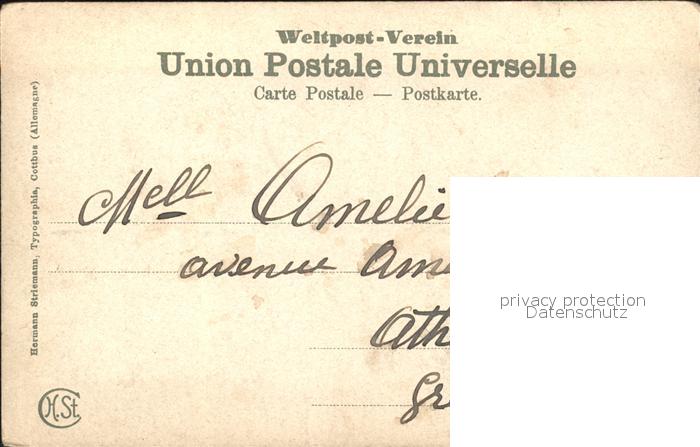 Weltpost-Verein
Union Postale Universelle
Carte Postale — Postkarte.
Mell Amelie
avenue Ame
Ath
Gr
privacy protection
Datenschutz
Hermann Striemann, Typographia, Cottbus (Allemagne)
H.St.